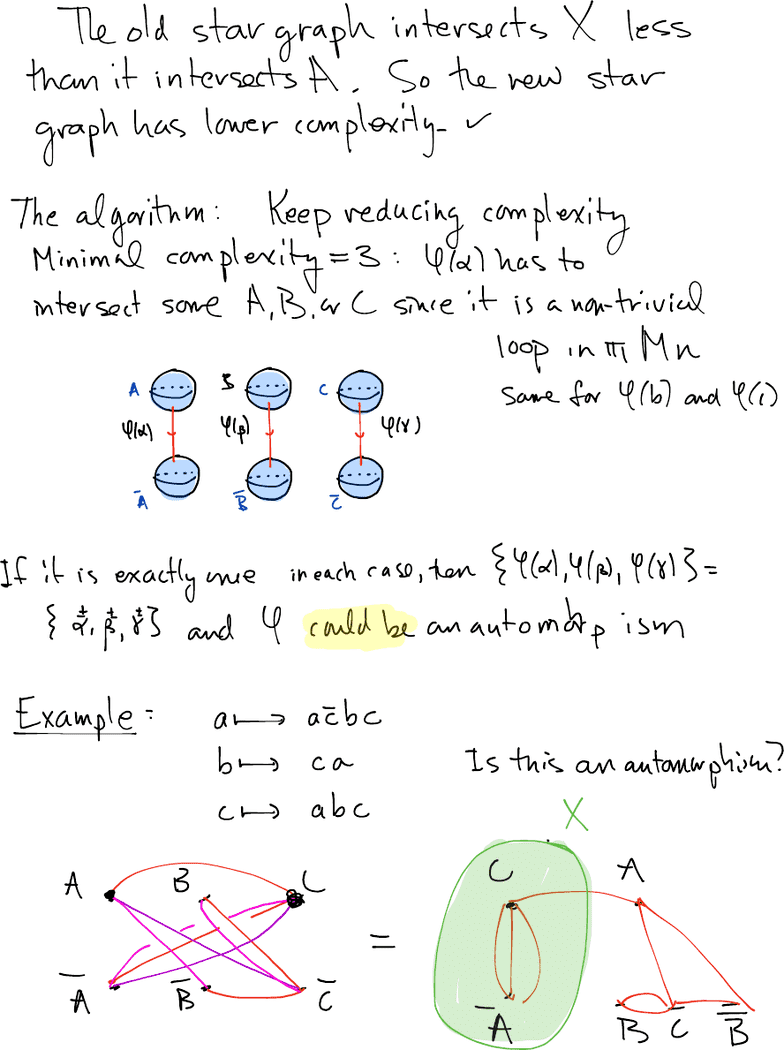 The old star graph intersects X less
than it intersects A. So the new star
graph has lower complexity. ✓
The algorithm: Keep reducing complexity
Minimal complexity = 3 : φ(α) has to
intersect some A, B, or C since it is a non-trivial
loop in π₁ Mn
same for φ(b) and φ(c)
A B C
φ(α) φ(β) φ(γ)
Ā B̄ C̄
If it is exactly one in each case, then {φ(α), φ(β), φ(γ)} =
{α^±, β^±, γ^±} and φ could be an automorphism
Example: a ↦ ac̄bc
b ↦ ca
c ↦ abc
Is this an automorphism?
X
A B C
Ā B̄ C̄
=
C A
Ā B C̄ B̄